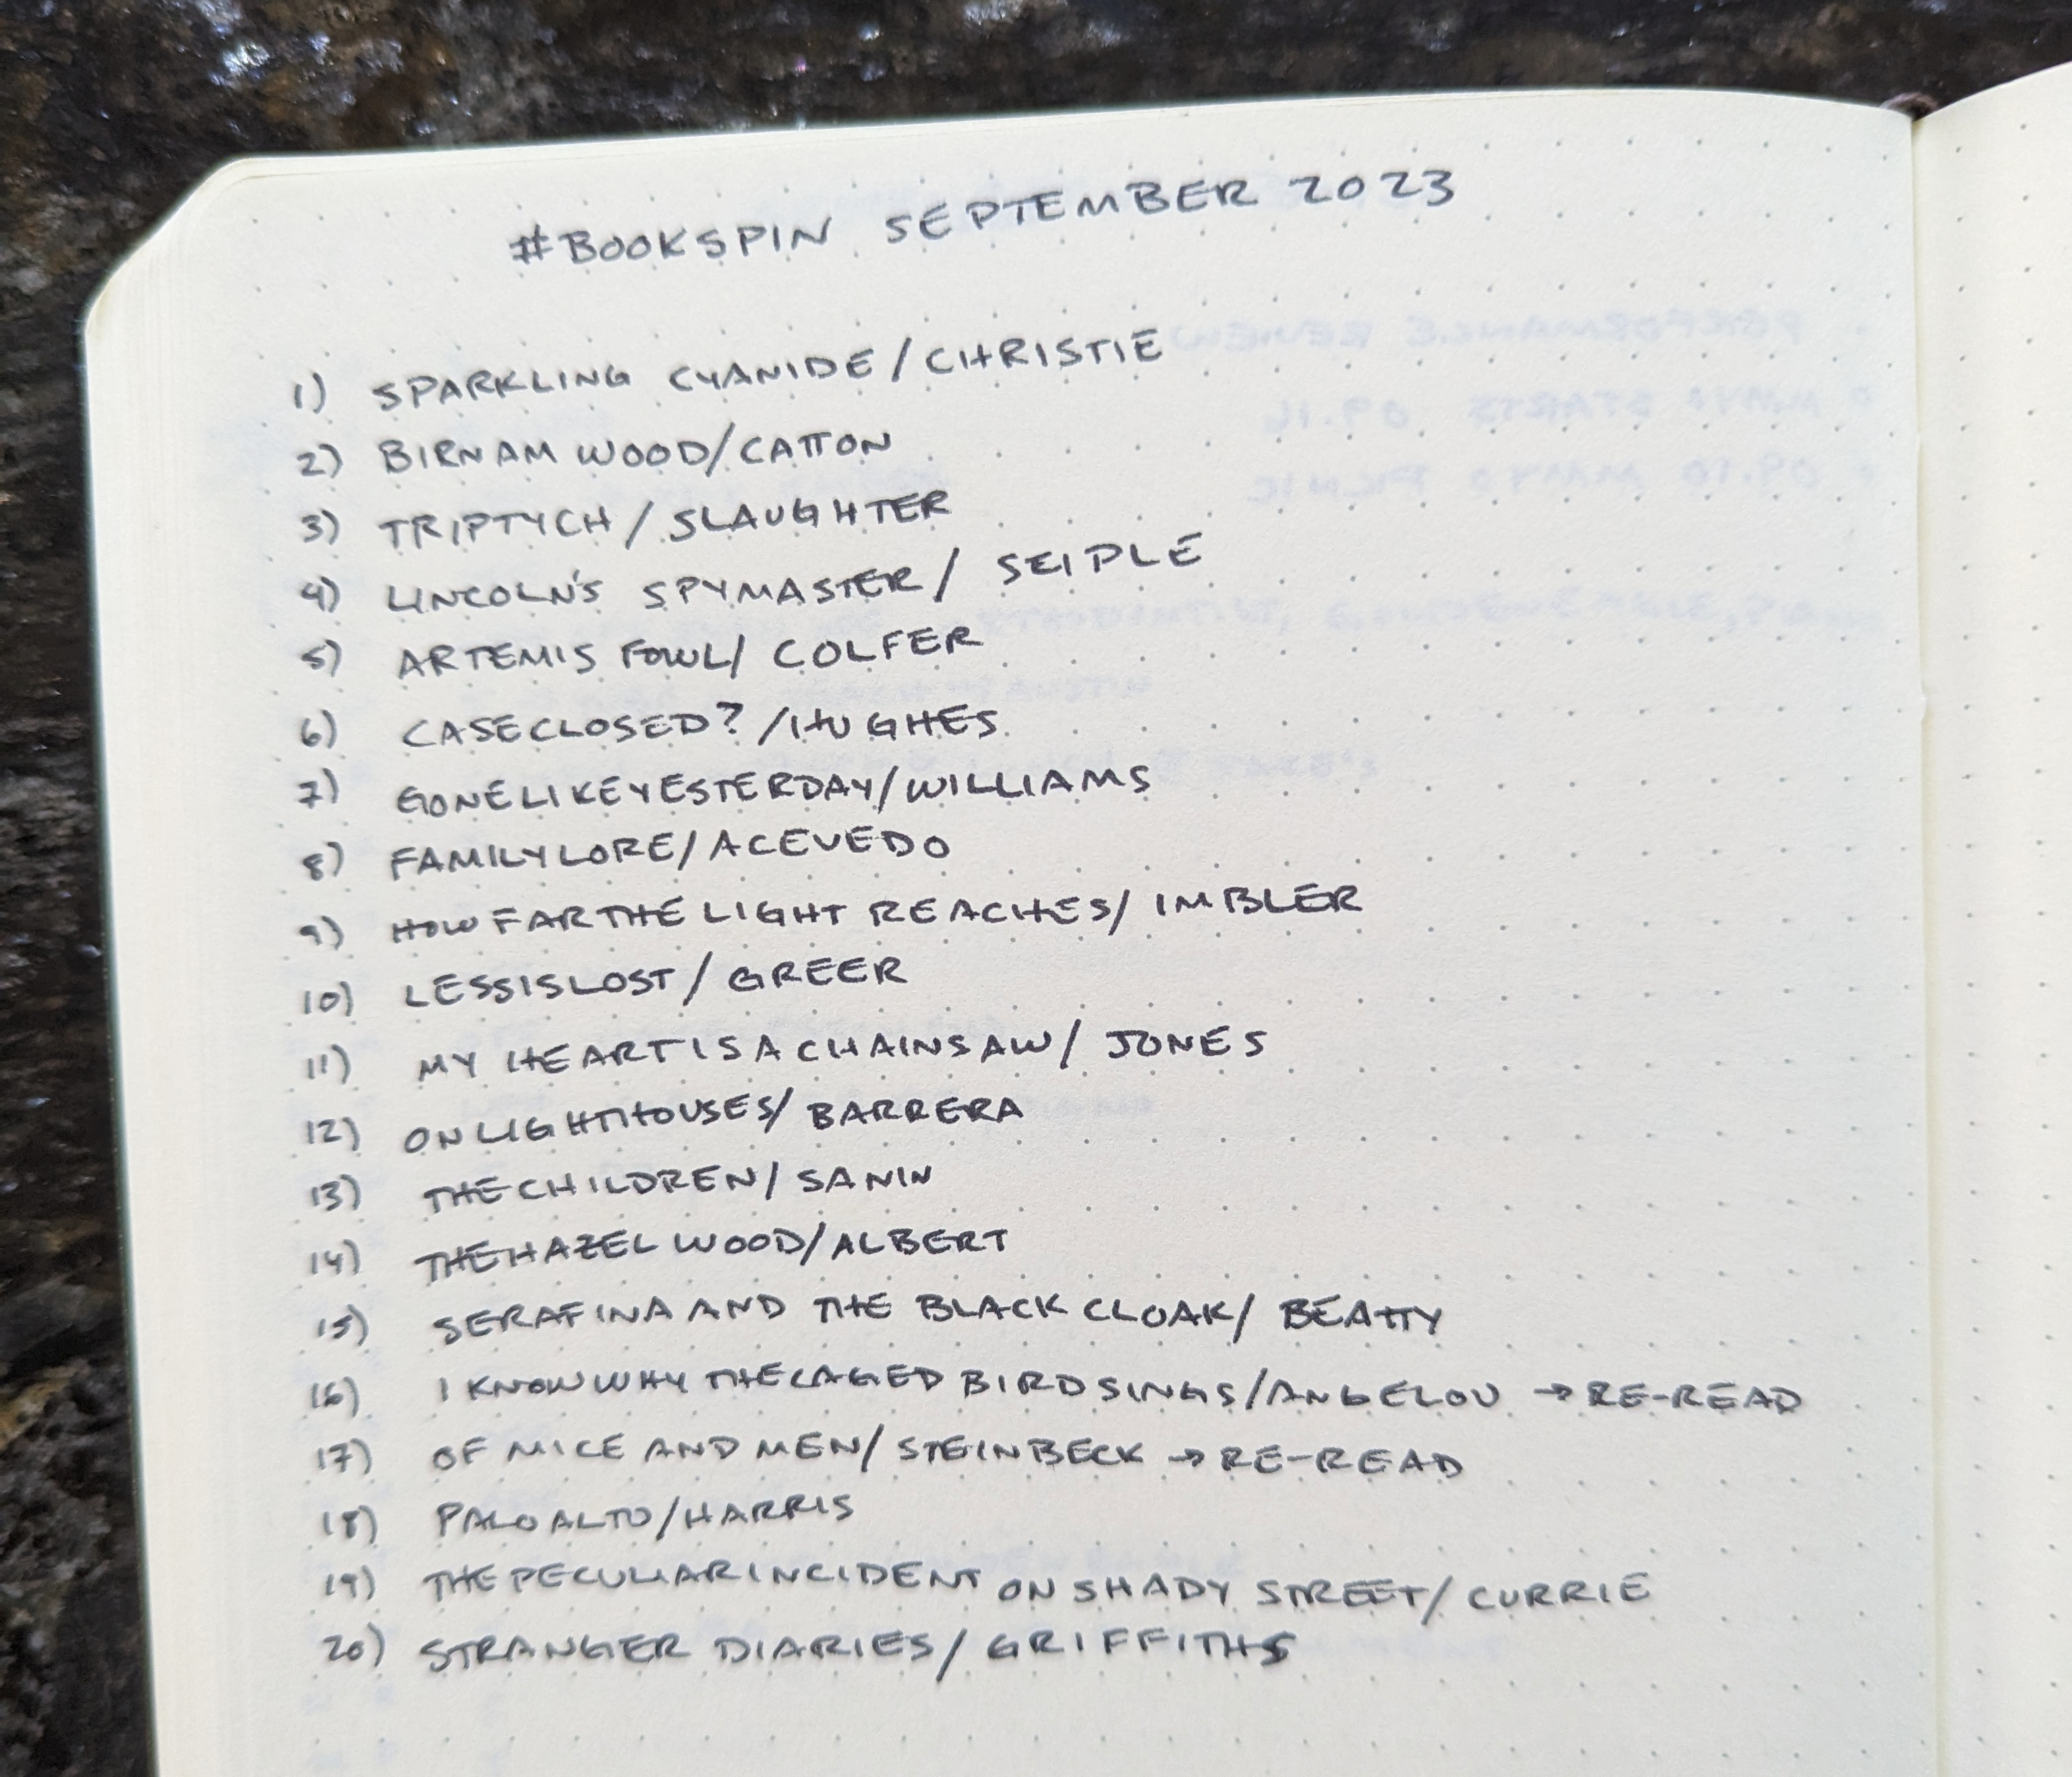 #BOOKSPIN SEPTEMBER 2023
1) SPARKLING CYANIDE/CHRISTIE
2) BIRNAM WOOD/CATTON
3) TRIPTYCH/SLAUGHTER
4) LINCOLN'S SPYMASTER/SEIPLE
5) ARTEMIS FOWL/COLFER
6) CASE CLOSED?/HUGHES
7) GONE LIKE YESTERDAY/WILLIAMS
8) FAMILY LORE/ACEVEDO
9) HOW FAR THE LIGHT REACHES/IMBLER
10) LESS IS LOST/GREER
11) MY HEART IS A CHAINSAW/JONES
12) ON LIGHTHOUSES/BARRERA
13) THE CHILDREN/SANIN
14) THE HAZEL WOOD/ALBERT
15) SERAFINA AND THE BLACK CLOAK/BEATTY
16) I KNOW WHY THE CAGED BIRD SINGS/ANGELOU → RE-READ
17) OF MICE AND MEN/STEINBECK → RE-READ
18) PALO ALTO/HARRIS
19) THE PECULIAR INCIDENT ON SHADY STREET/CURRIE
20) STRANGER DIARIES/GRIFFITHS